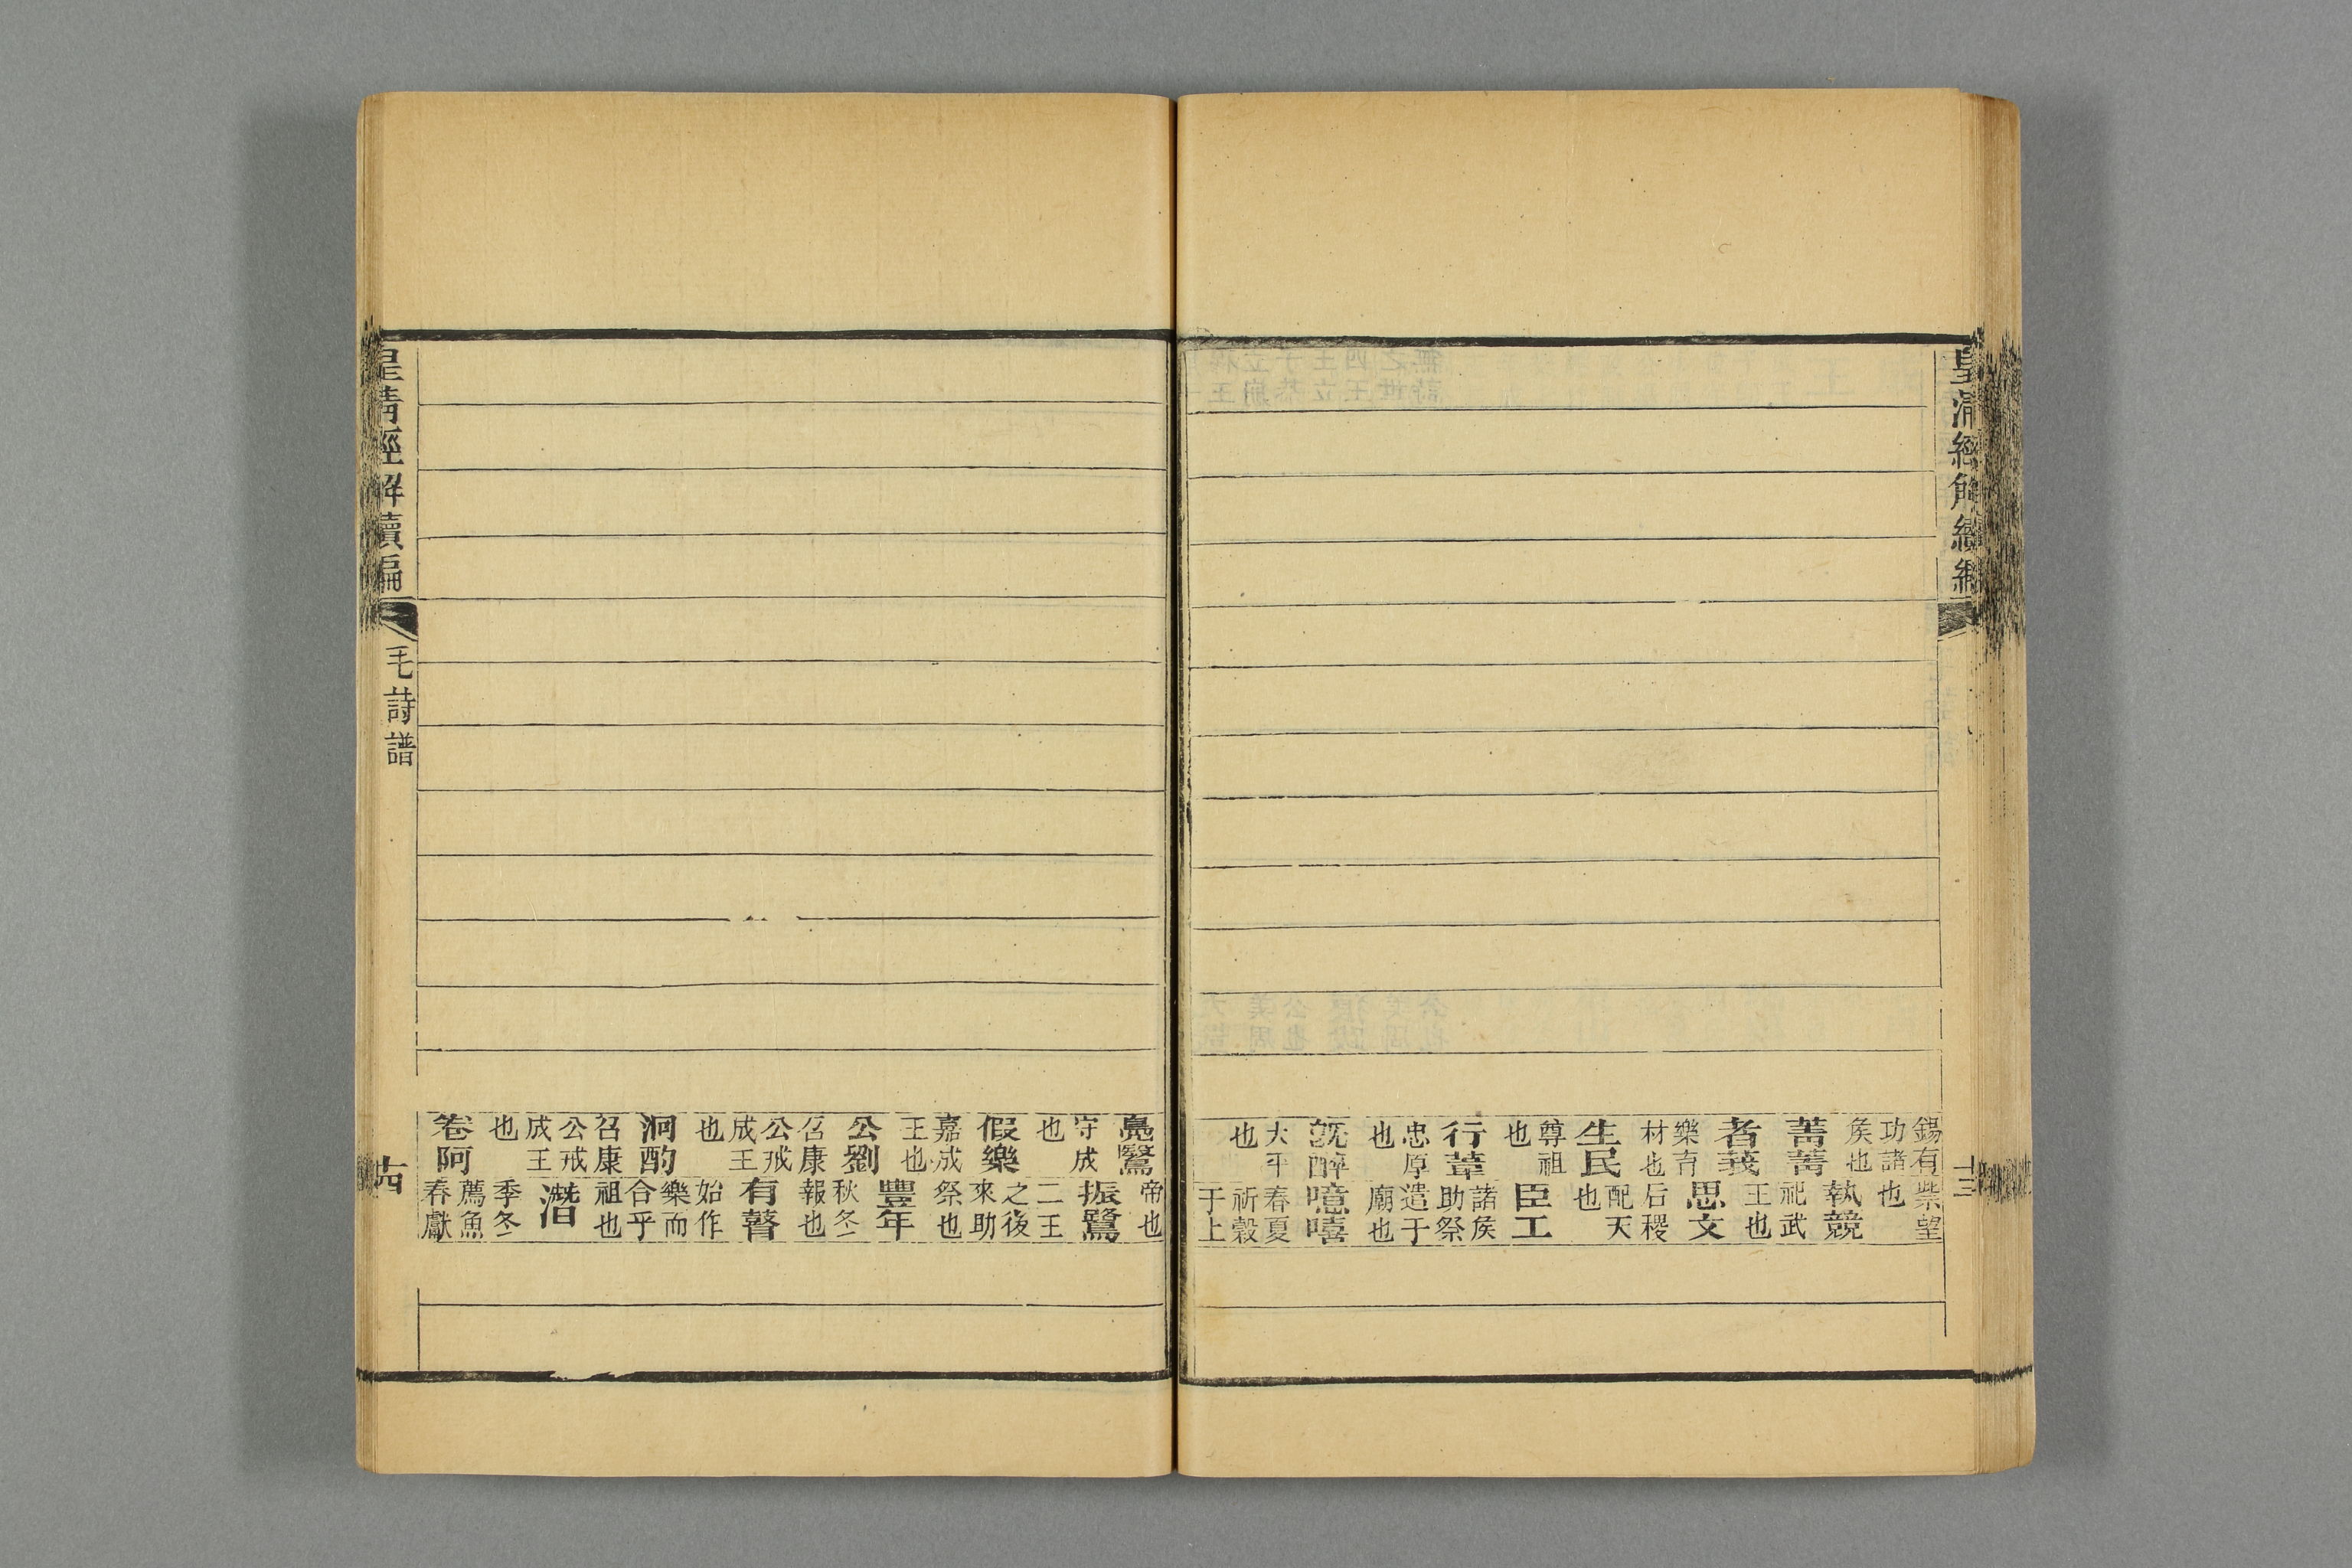 皇清經解續編
十三
錫有
功諸
矦也
菁菁
者莪
樂育
材也
生民
尊祖
也
行葦
忠厚
也
既醉
大平
也
柴望
也
執競
祀武
王也
思文
后稷
配天
也
臣工
諸矦
助祭
遣于
廟也
噫嘻
春夏
祈穀
于上
鳧鷖
守成
也
假樂
嘉成
王也
公劉
召康
公戒
成王
也
泂酌
召康
公戒
成王
也
卷阿
帝也
振鷺
二王
之後
來助
祭也
豐年
秋冬
報也
有瞽
始作
樂而
合乎
祖也
潛
季冬
薦魚
春獻
皇清經解續編
毛詩譜
十四